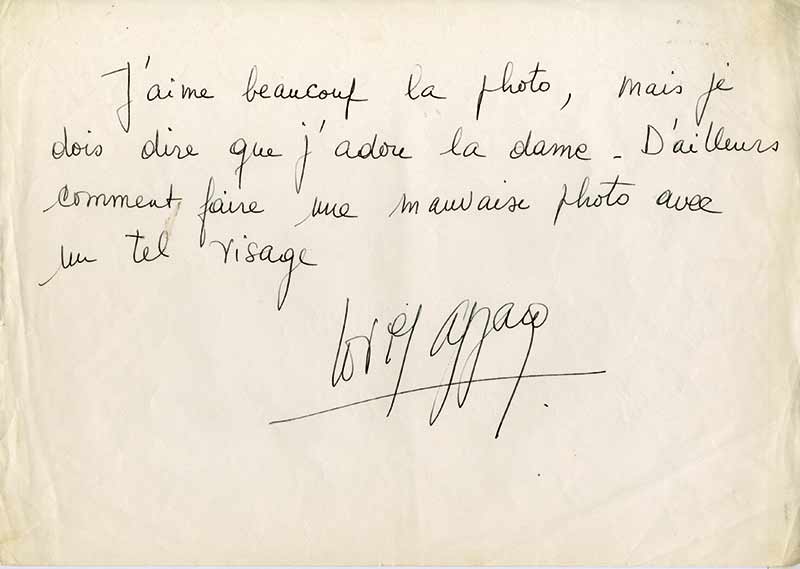 J'aime beaucoup la photo, mais je
dois dire que j'adore la dame - D'ailleurs
comment faire une mauvaise photo avec
un tel visage
Loris Azzaro